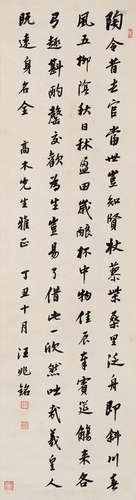 陶令昔去官當世豈知賢杖藜桑里泛舟即斜川春
風五柳蔭秋日秫盈田歲釀杯中物佳辰奉賓筵觴來各
趣斟酌罄交歡為生豈易了借此一欣然哉羲皇人
既遠身名全 高木先生雅正 丁丑十月 汪兆銘